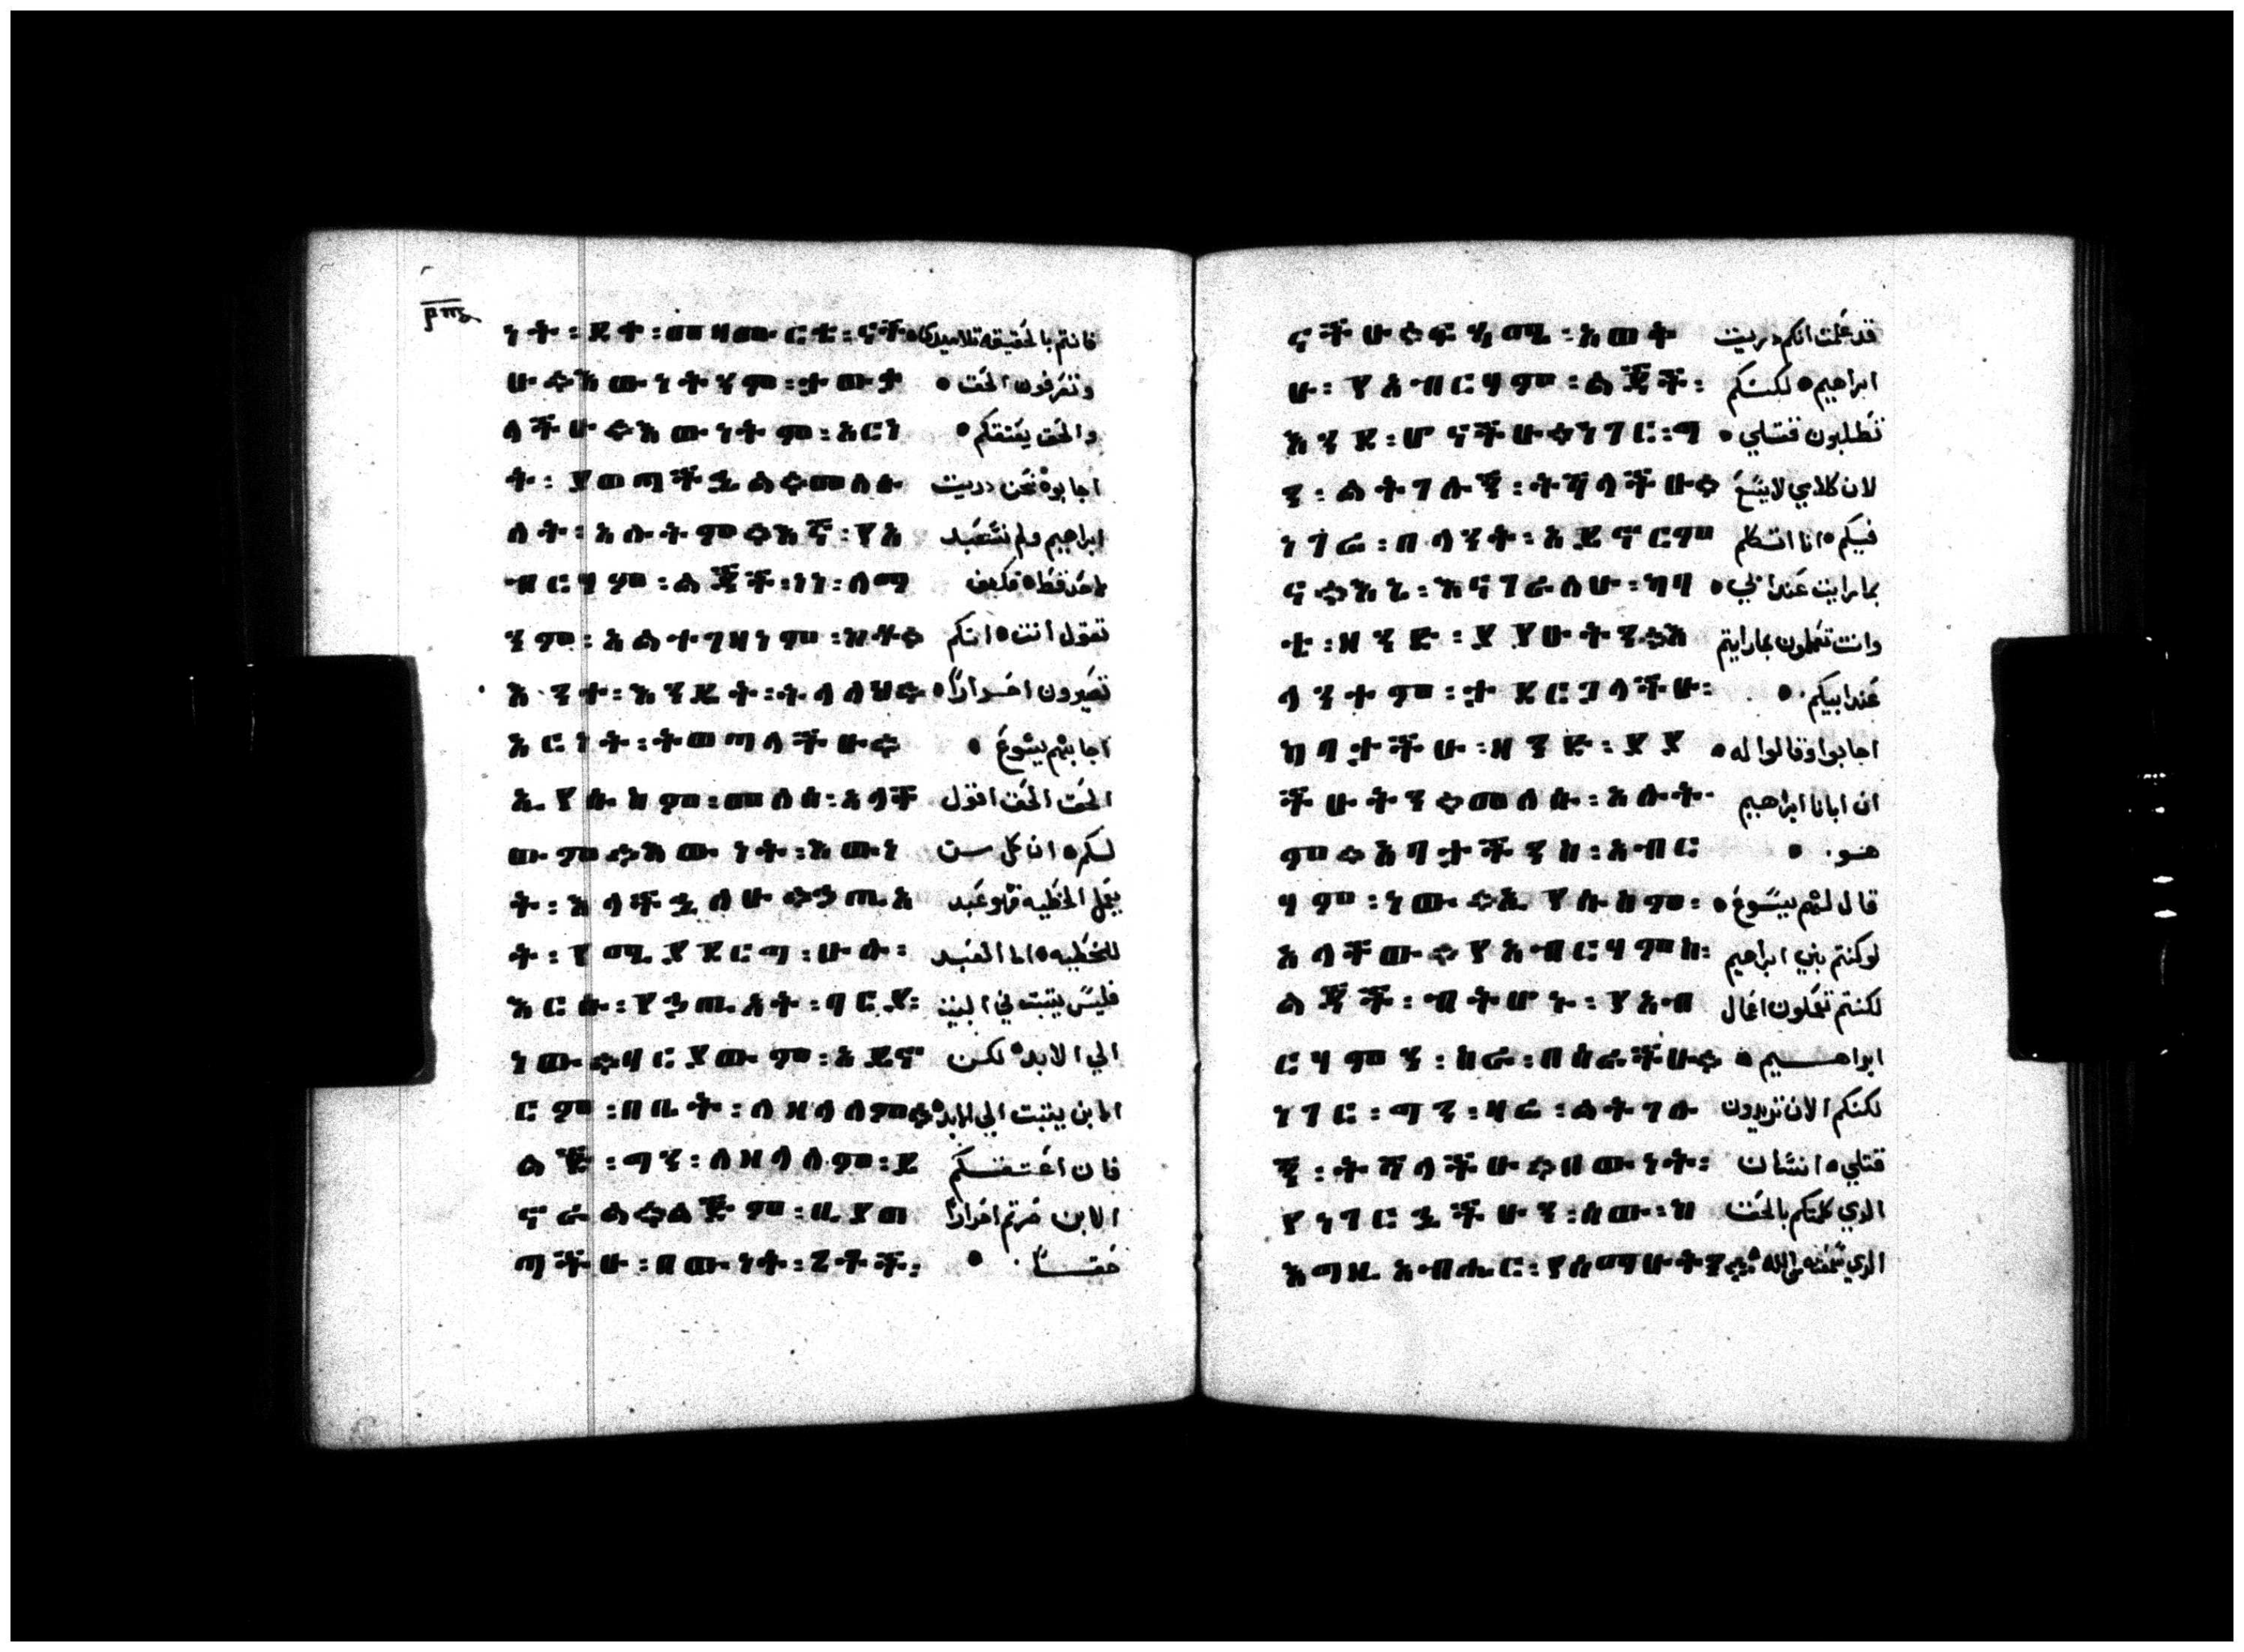 ነት፡ደቀ፡መዛሙርቴ፡ናች فانتم بالحقيقه تلاميدي
ሁ።እውነትንም፡ታውቃ وتعرفون الحق
ላችሁ።እውነትም፡አርነ والحق يعتقكم
ት፡ያወጣችኋል።መለሱ اجابوه نحن دريت
ለት፡እሱቱም።እኛ፡የአ ابراهيم ولم نستعبد
ብርሃም፡ልጆች፡ነነ፡ለማ لاحد قط فكيف
ንም፡አልተገዛነም፡ከቶ። تقول انت انكم
አንተ፡እንዴት፡ትላለህ። تصيرون احرارا
አርነት፡ትወጣላችሁ። اجابهم يسوع
ኢየሱስም፡መለሰ፡አላቸ الحق الحق اقول
ውም።እውነት፡እውነ لكم ان كل من
ት፡እላችኋለሁ።ኃጢአ يعمل الخطيه فهو عبد
ት፡የሚያደርግ፡ሁሉ፡ للخطيه اما العبد
እርሱ፡የኃጢአት፡ባርያ፡ فليس يتبت في البيت
ነው።ባርያውም፡አይኖ الي الابد لكن
ርም፡በቤት፡ለዘላለም። الابن يتبت الي الابد
ልጅ፡ግን፡ለዘላለም፡ይ فان اعتقكم
ኖራል።ልጁም፡ቢያወ الابن صرتم احرارا
ጣችሁ፡በውነት፡ حقا
ናችሁ። አወቅ قد علمت انكم دريت
ሁ፡የአብርሃም፡ልጆች፡ ابراهيم لكنكم
እንደ፡ሆናችሁ።ነገር፡ግ تطلبون قتلي
ን፡ልትገሉኝ፡ትሻላችሁ። لان كلامي لا يسع
ነገሬ፡በላንት፡አይኖርም فيكم انا اتكلم
ና።እኔ፡እናገራለሁ፡ካባ بما رايت عند ابي
ቴ፡ዘንድ፡ያየሁትን።እ وانتم تعملون بما رايتم
ላንተም፡ታደርጋላችሁ፡ عند ابيكم
ካባታችሁ፡ዘንድ፡ያያ اجابوا وقالوا له
ችሁትን።መለሱ፡እሱቱ ان ابانا ابراهيم
ም።አባታችንስ፡አብር هو
ሃም፡ነው።ኢየሱስም፡ قال لهم يسوع
አላቸው።የአብርሃምስ፡ لو كنتم بني ابراهيم
ልጆች፡ብትሆኑ፡የአብ لكنتم تعملون اعمال
ርሃምን፡ስራ፡በሰራችሁ። ابراهيم
ነገር፡ግን፡ዛሬ፡ልትገሉ لكنكم الان تريدون
ኝ፡ትሻላችሁ።በውነት፡ قتلي انسان
የነገርኋችሁን፡ሰው፡ከ الدي كلمتكم بالحق
እግዚአብሔር፡የሰማሁትን الدي سمعته من الله